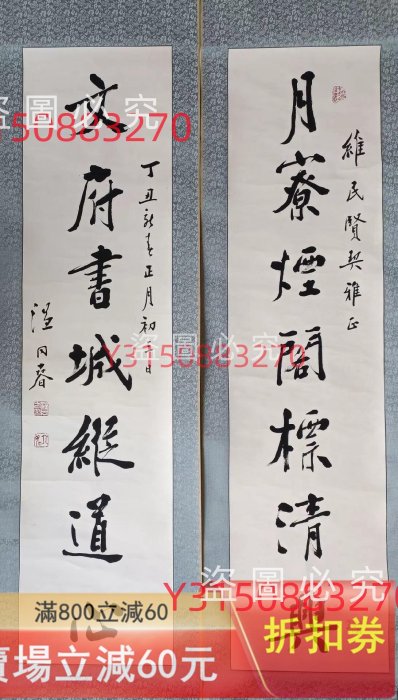 月寮煙閣標清
維民賢契雅正
府書城縱道
丁丑新春正月初
同春
盜圖必究
150883270
盜圖必究
Y3150883270
盜圖必究
Y3150883270
滿800立減60
賣場立減60元
折扣券